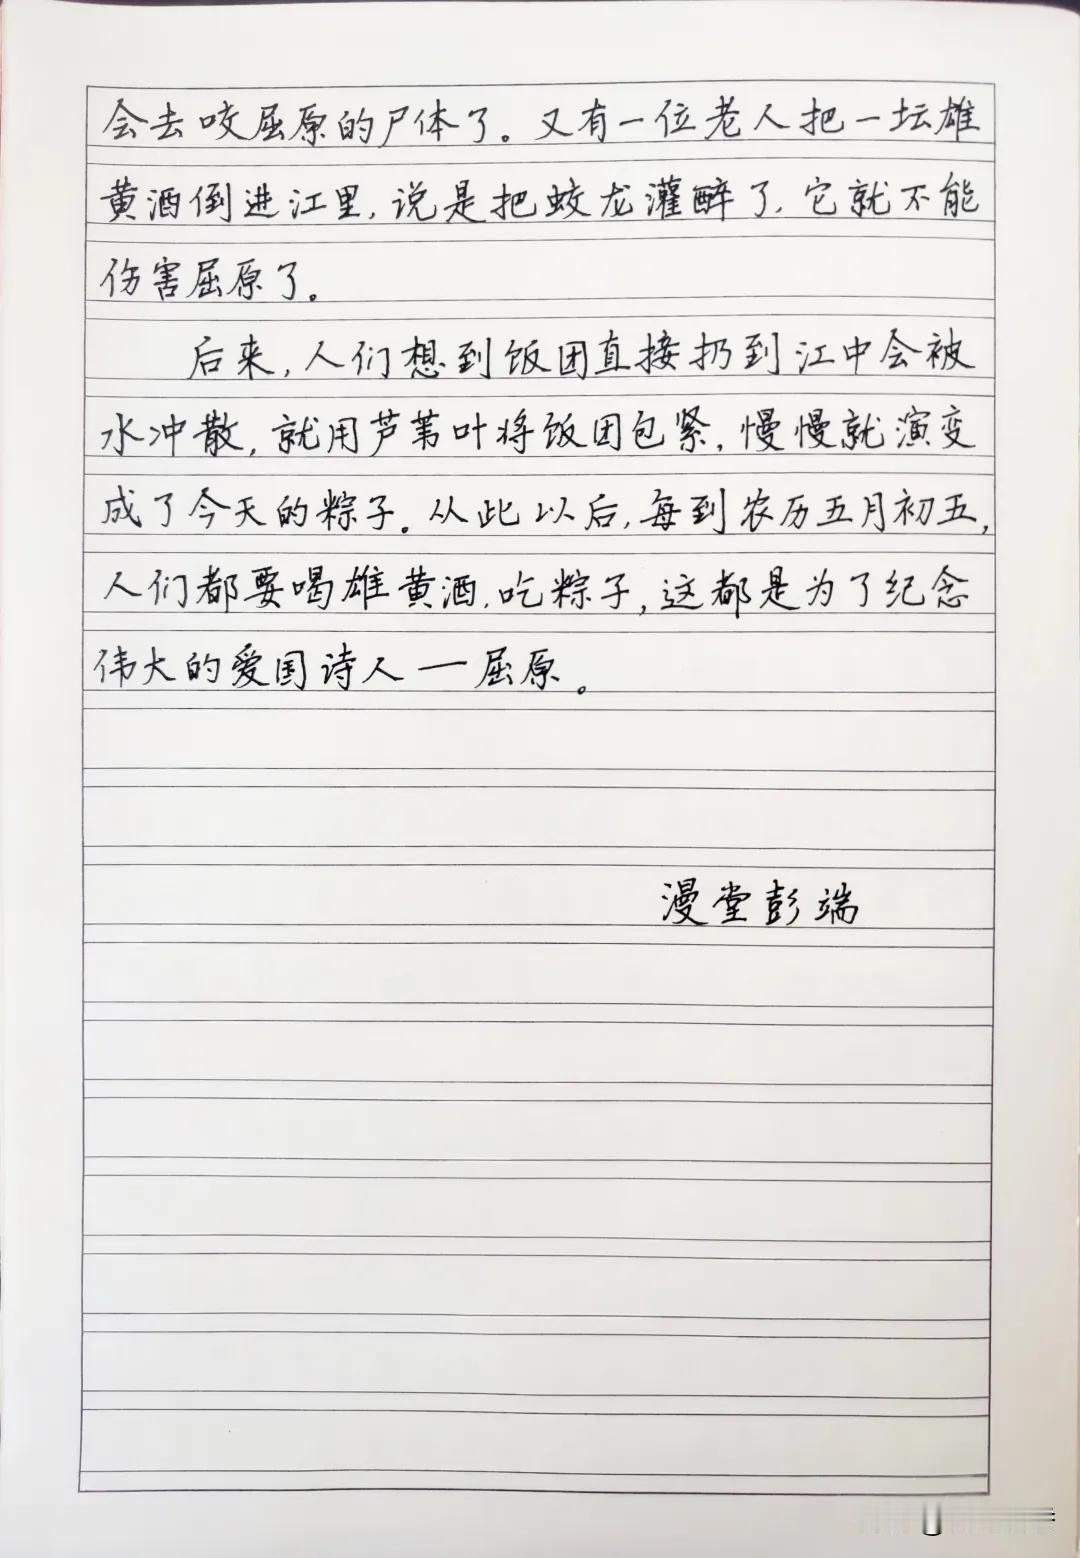 会去咬屈原的尸体了。又有一位老人把一坛雄
黄酒倒进江里,说是把蛟龙灌醉了,它就不能
伤害屈原了。
后来,人们想到饭团直接扔到江中会被
水冲散,就用芦苇叶将饭团包紧,慢慢就演变
成了今天的粽子。从此以后,每到农历五月初五,
人们都要喝雄黄酒,吃粽子,这都是为了纪念
伟大的爱国诗人一屈原。
漫堂彭端